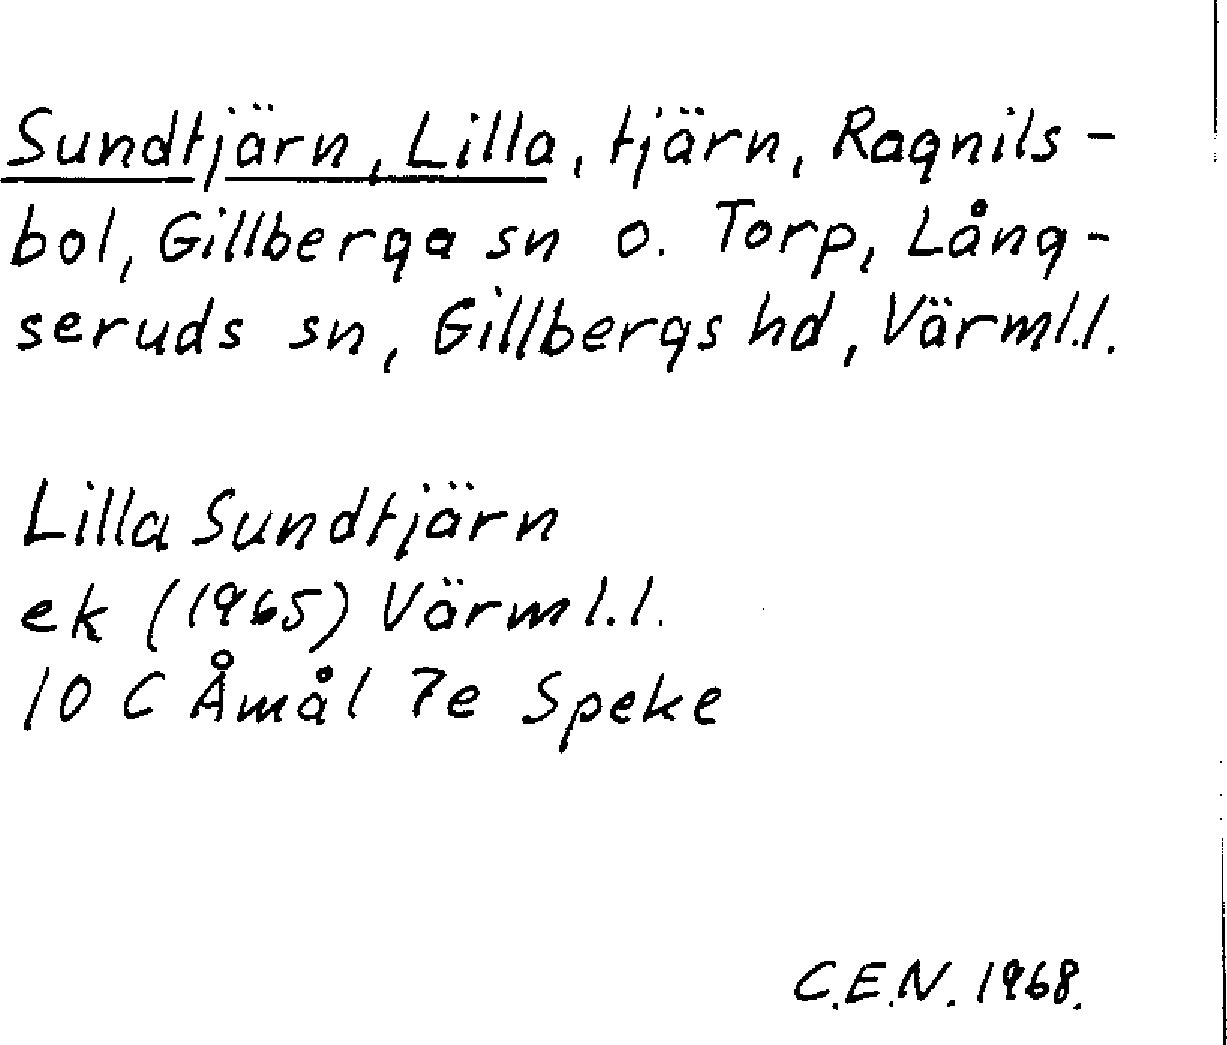 Sundtjärn, Lilla, tjärn, Ragnils-
bol, Gillberga sn o. Torp, Lång-
seruds sn, Gillbergs hd, Värml.l.
Lilla Sundtjärn
ek (1965) Värml.l.
10 C Åmål 7e Speke
C.E.N. 1968.